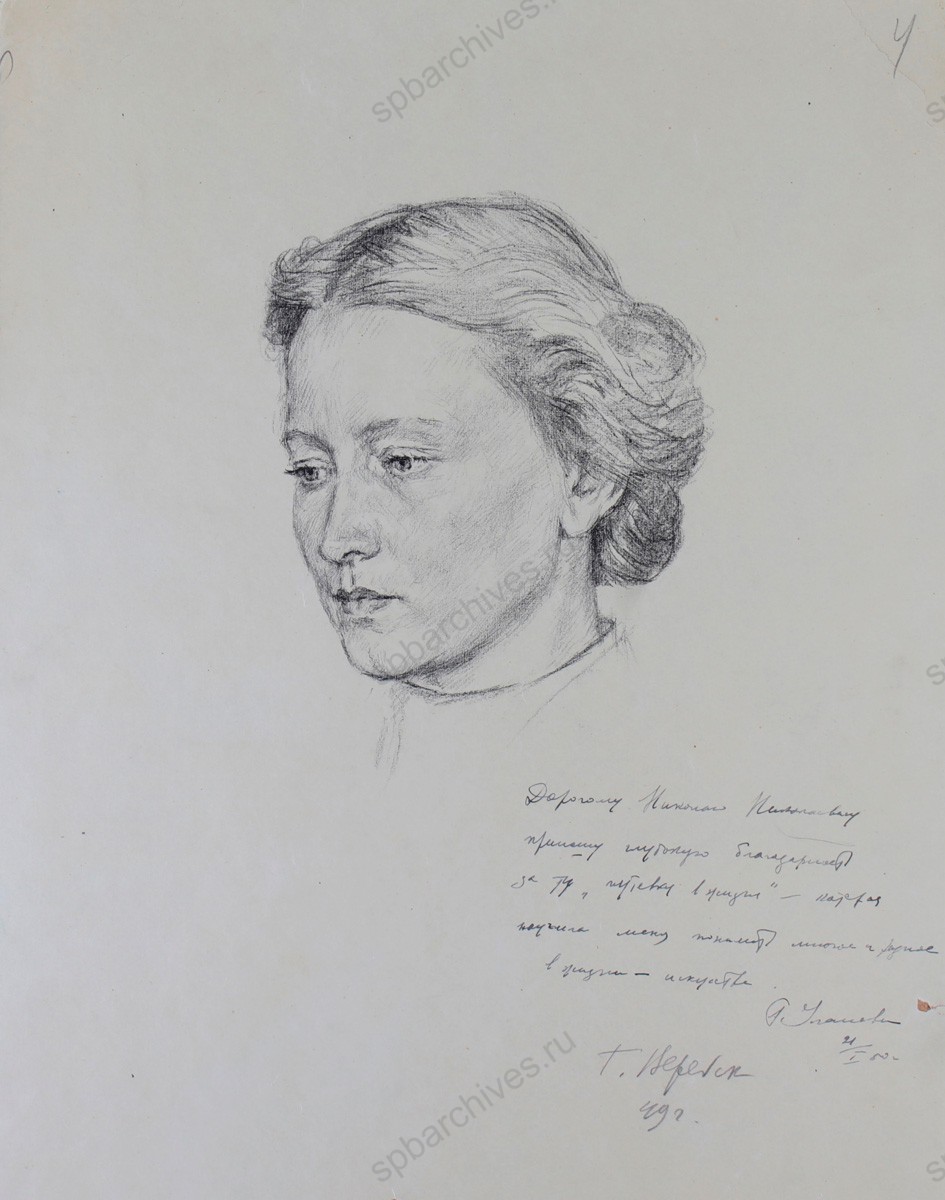 spbarchives.ru
Ч
Дорогому Николаю Николаевичу
приношу глубокую благодарность
за ту „путевку в жизнь" — которая
научила меня понимать многое и
в жизни — искусстве.
Г. Уланова
21/I 50 г.
Г. Верейск
49 г.
spbarchives.ru
spbarchives.ru